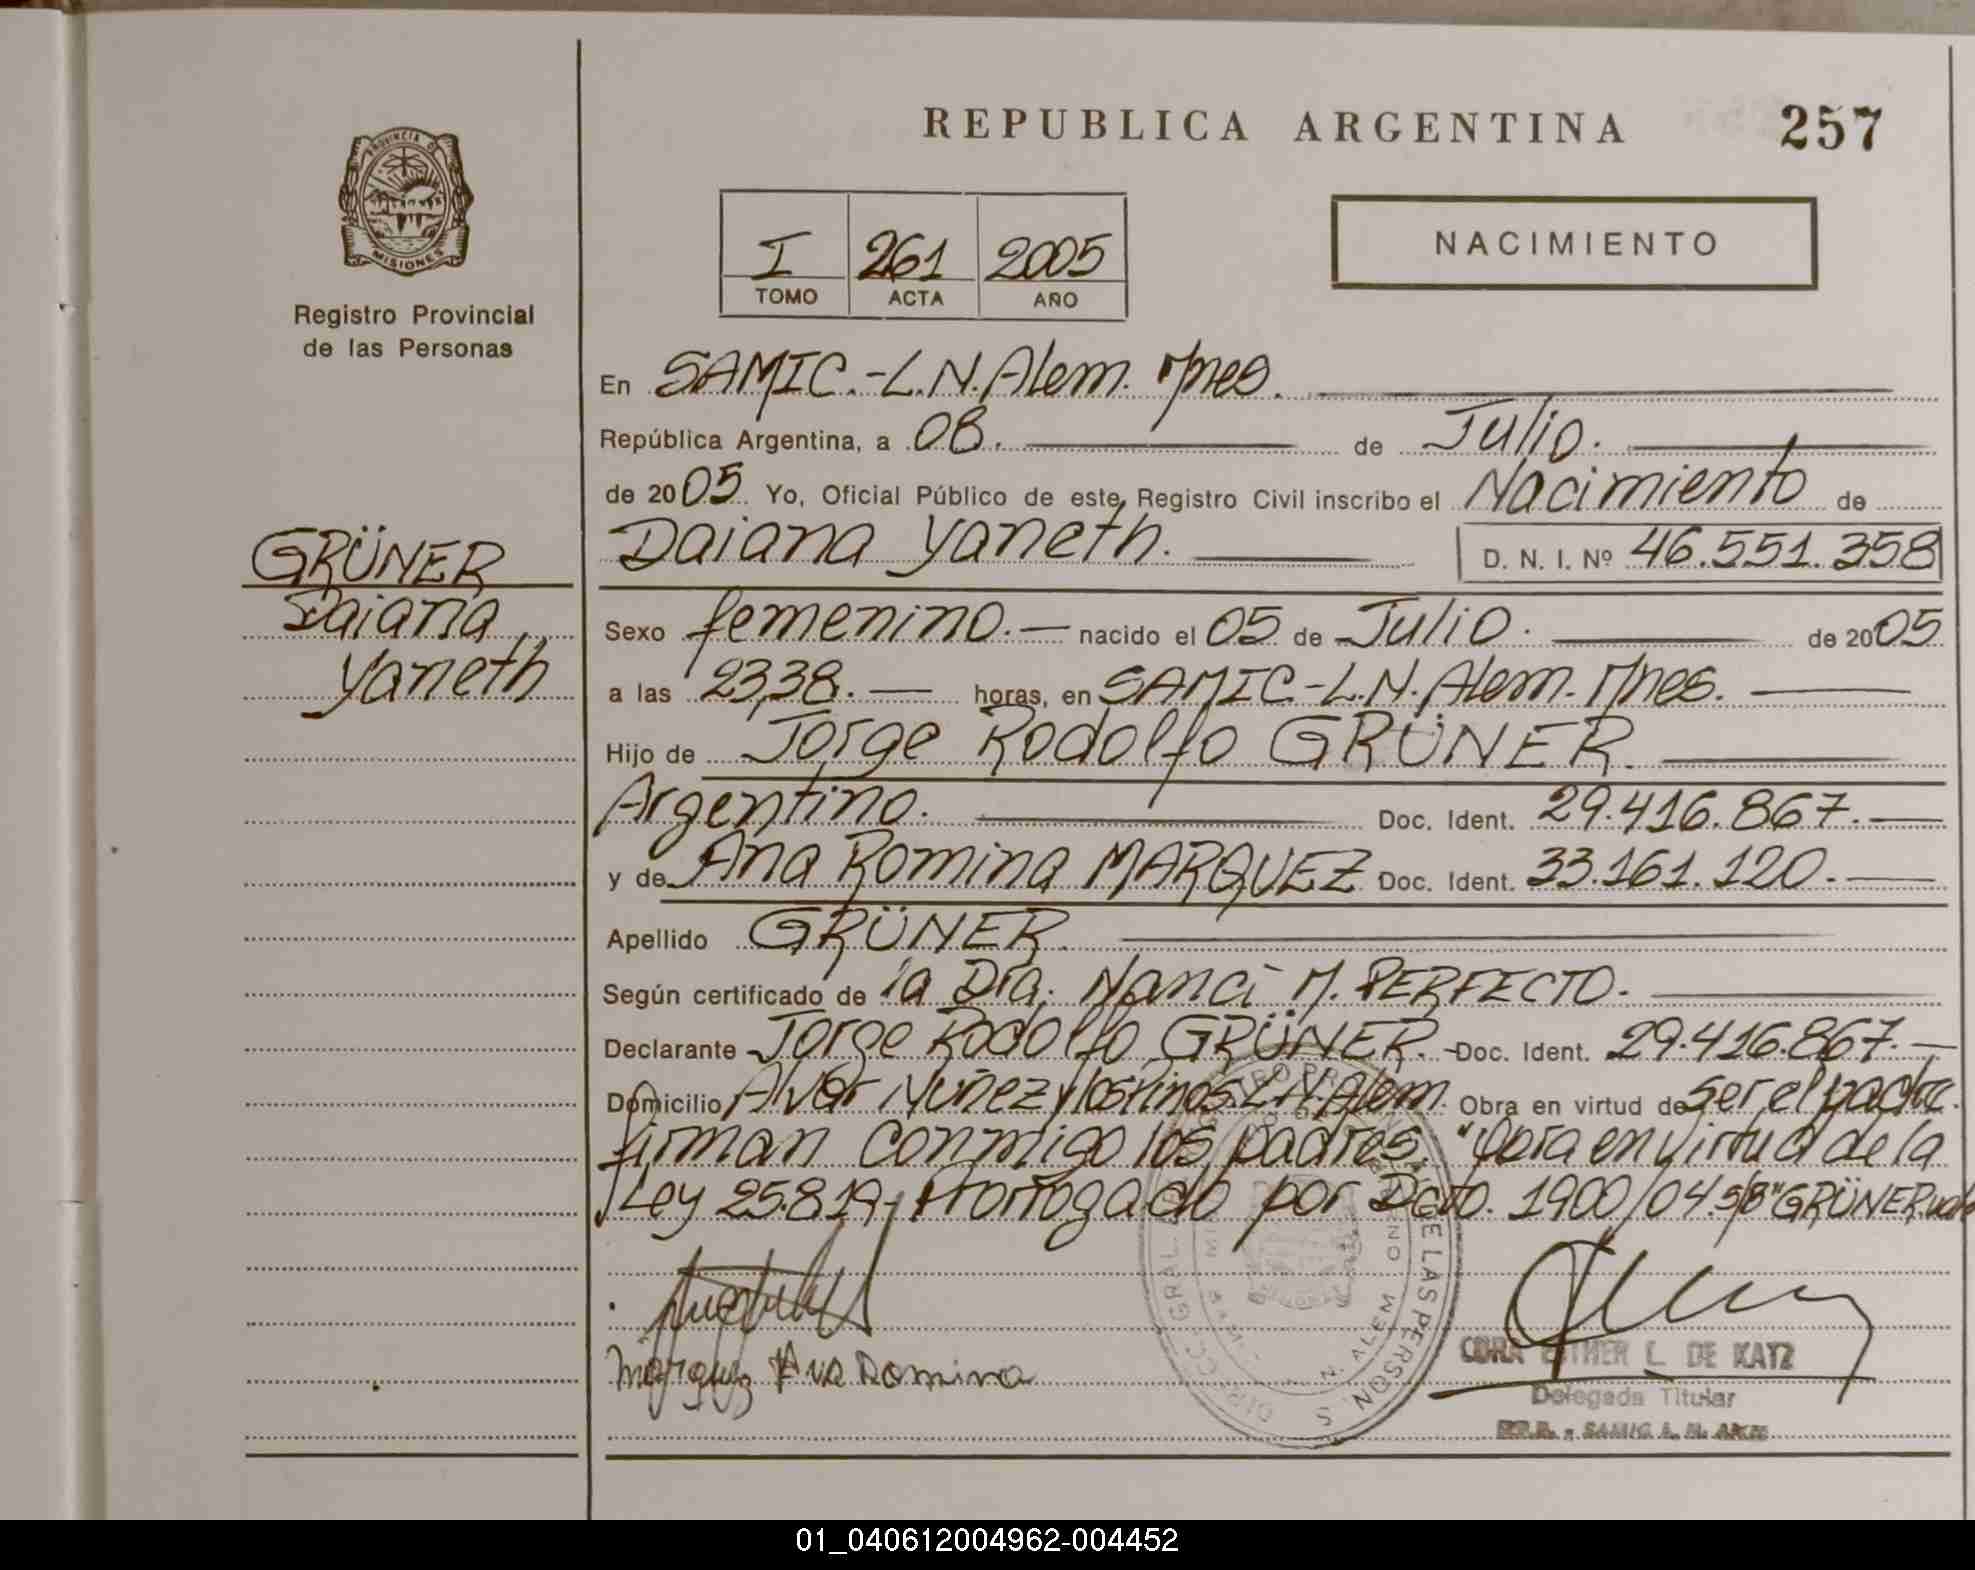 REPUBLICA ARGENTINA
257
PROVINCIA DE
MISIONES
Registro Provincial
de las Personas
I 261 2005
TOMO ACTA AÑO
NACIMIENTO
En SAMIC.-L.N.Alem. Mnes.
República Argentina, a 08. de Julio.
de 2005 Yo, Oficial Público de este Registro Civil inscribo el Nacimiento de
Daiana Yaneth. D. N. I. Nº 46.551.358
GRÜNER
Daiana
Yaneth
Sexo femenino.— nacido el 05 de Julio. de 2005
a las 23,38.— horas, en SAMIC-L.N.Alem. Mnes.
Hijo de Jorge Rodolfo GRÜNER.
Argentino. Doc. Ident. 29.416.867.—
y de Ana Romina MARQUEZ Doc. Ident. 33.161.120.—
Apellido GRÜNER.
Según certificado de la Dra. Nanci M. PERFECTO.
Declarante Jorge Rodolfo GRÜNER.- Doc. Ident. 29.416.867.—
Domicilio Alvar Nuñez y los Pinos.L.N.Alem. Obra en virtud de ser el padre.
firman conmigo los padres. "Obra en virtud de la
Ley 25.819, Prorrogado por Dcto. 1900/04.S/B"GRÜNER.vale
Marquez Ana Romina
CORA ESTHER L. DE KATZ
Delegada Titular
SAMIC L. N. ALEM
DE LAS PERSONAS
N. ALEM
01_040612004962-004452